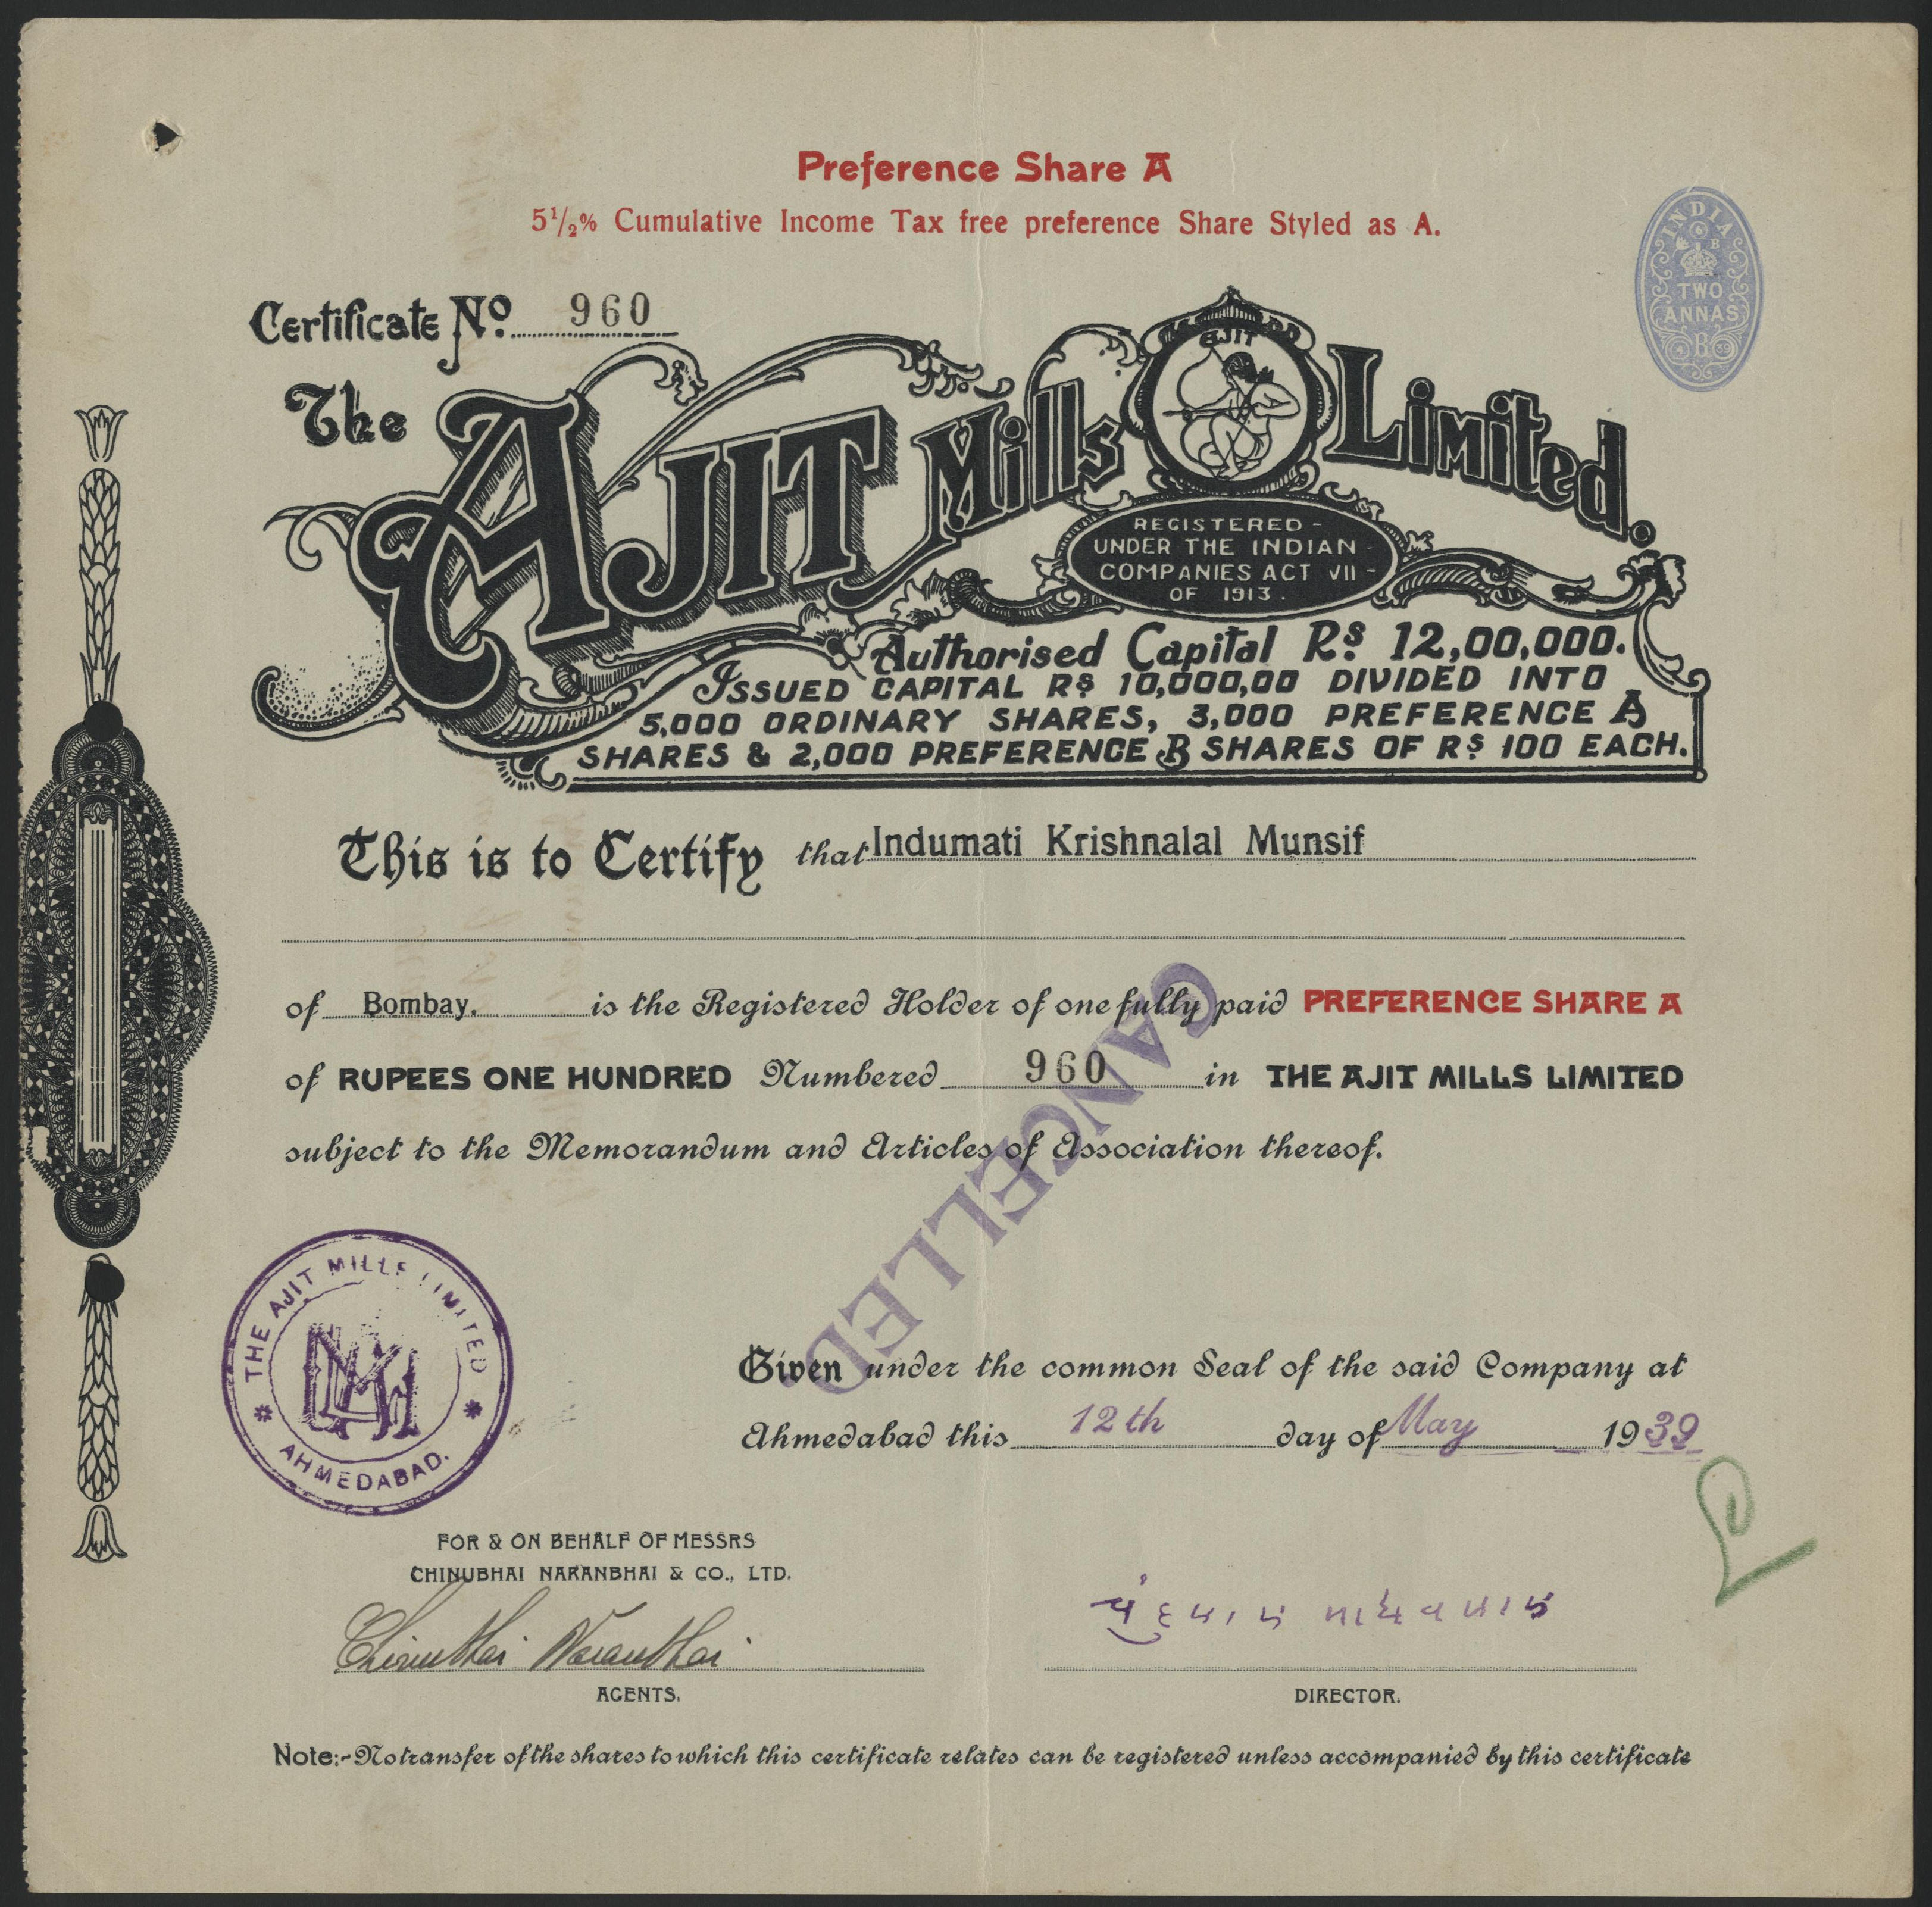 Preference Share A
5½% Cumulative Income Tax free preference Share Styled as A.
INDIA
6 B
TWO
ANNAS
B
Certificate No. 960
The AJIT Mills Limited.
AJIT
REGISTERED -
UNDER THE INDIAN -
COMPANIES ACT VII -
OF 1913.
Authorised Capital Rs 12,00,000.
ISSUED CAPITAL Rs 10,000,00 DIVIDED INTO
5,000 ORDINARY SHARES, 3,000 PREFERENCE A
SHARES & 2,000 PREFERENCE B SHARES OF Rs 100 EACH.
This is to Certify that Indumati Krishnalal Munsif
of Bombay. is the Registered Holder of one fully paid PREFERENCE SHARE A
of RUPEES ONE HUNDRED Numbered 960 in THE AJIT MILLS LIMITED
subject to the Memorandum and Articles of Association thereof.
CANCELLED
THE AJIT MILLS LIMITED
AHMEDABAD.
Given under the common Seal of the said Company at
Ahmedabad this 12th day of May 1939
FOR & ON BEHALF OF MESSRS
CHINUBHAI NARANBHAI & CO., LTD.
Chinubhai Naranbhai
AGENTS.
DIRECTOR.
Note:- No transfer of the shares to which this certificate relates can be registered unless accompanied by this certificate